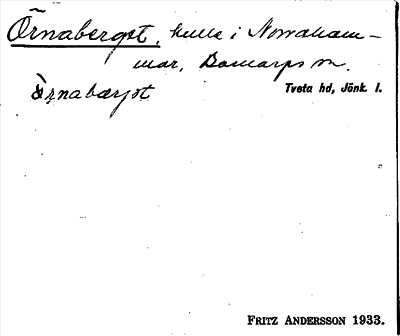 Örnabergst, kulle i Norraham-
mar, Barnarps sn.
Tveta hd, Jönk. l.
FRITZ ANDERSSON 1933.